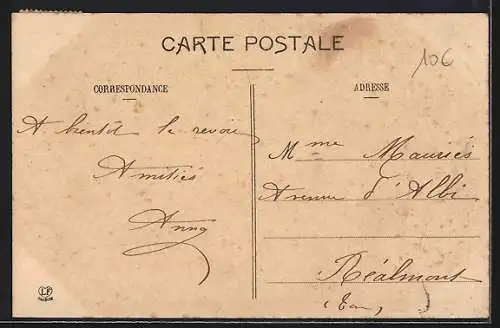 CARTE POSTALE
106
CORRESPONDANCE
A bientôt le revoir
Amitiés
Anny
ADRESSE
Mme Mauriés
Avenue d'Albi
Réalmont
(Tarn)
LF